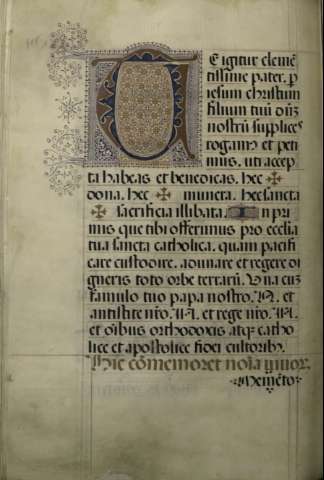 Te igitur clemē
tissime pater. p
iesum christum
filium tuū dn̄z
nostrū supplices
rogamus et peti
mus. uti accep
ta habeas et benedicas. hec ✠
dona. hec ✠ munera. hec sancta
✠ sacrificia illibata. In pri
mis que tibi offerimus pro ecclia
tua sancta catholica. quam pacifi
care custodire. adunare et regere di
gneris toto orbe terrarū. Una cuz
famulo tuo papa nostro .N. et
antistite nr̄o .N. et rege nr̄o .N. et
et oībus orthodoxis atqꝫ catho
lice et apostolice fidei cultoribꝫ.
Hic cōmemoret noīa uiuor.
Memēto